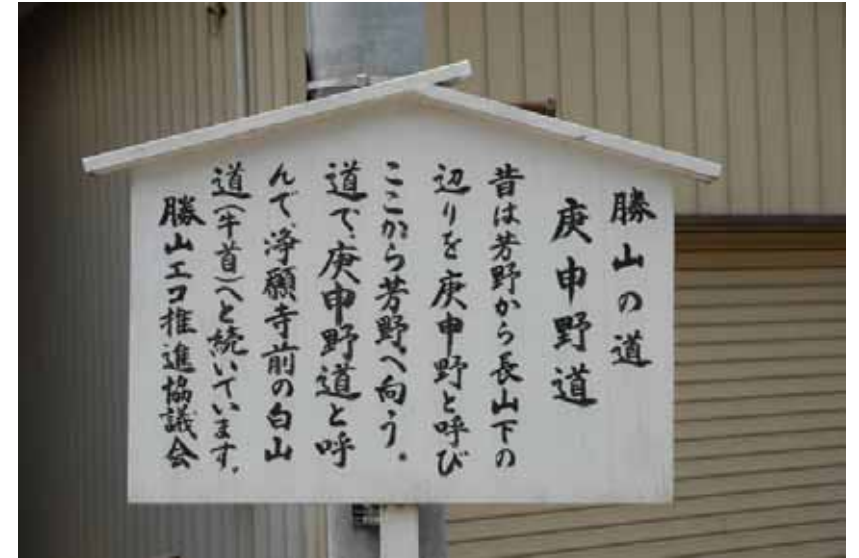 勝山の道
庚申野道
昔は芳野から長山下の
辺りを庚申野と呼び
ここから芳野へ向う。
道で、庚申野道と呼
んで、浄願寺前の白山
道(牛首)へと続いています。
勝山エコ推進協議会